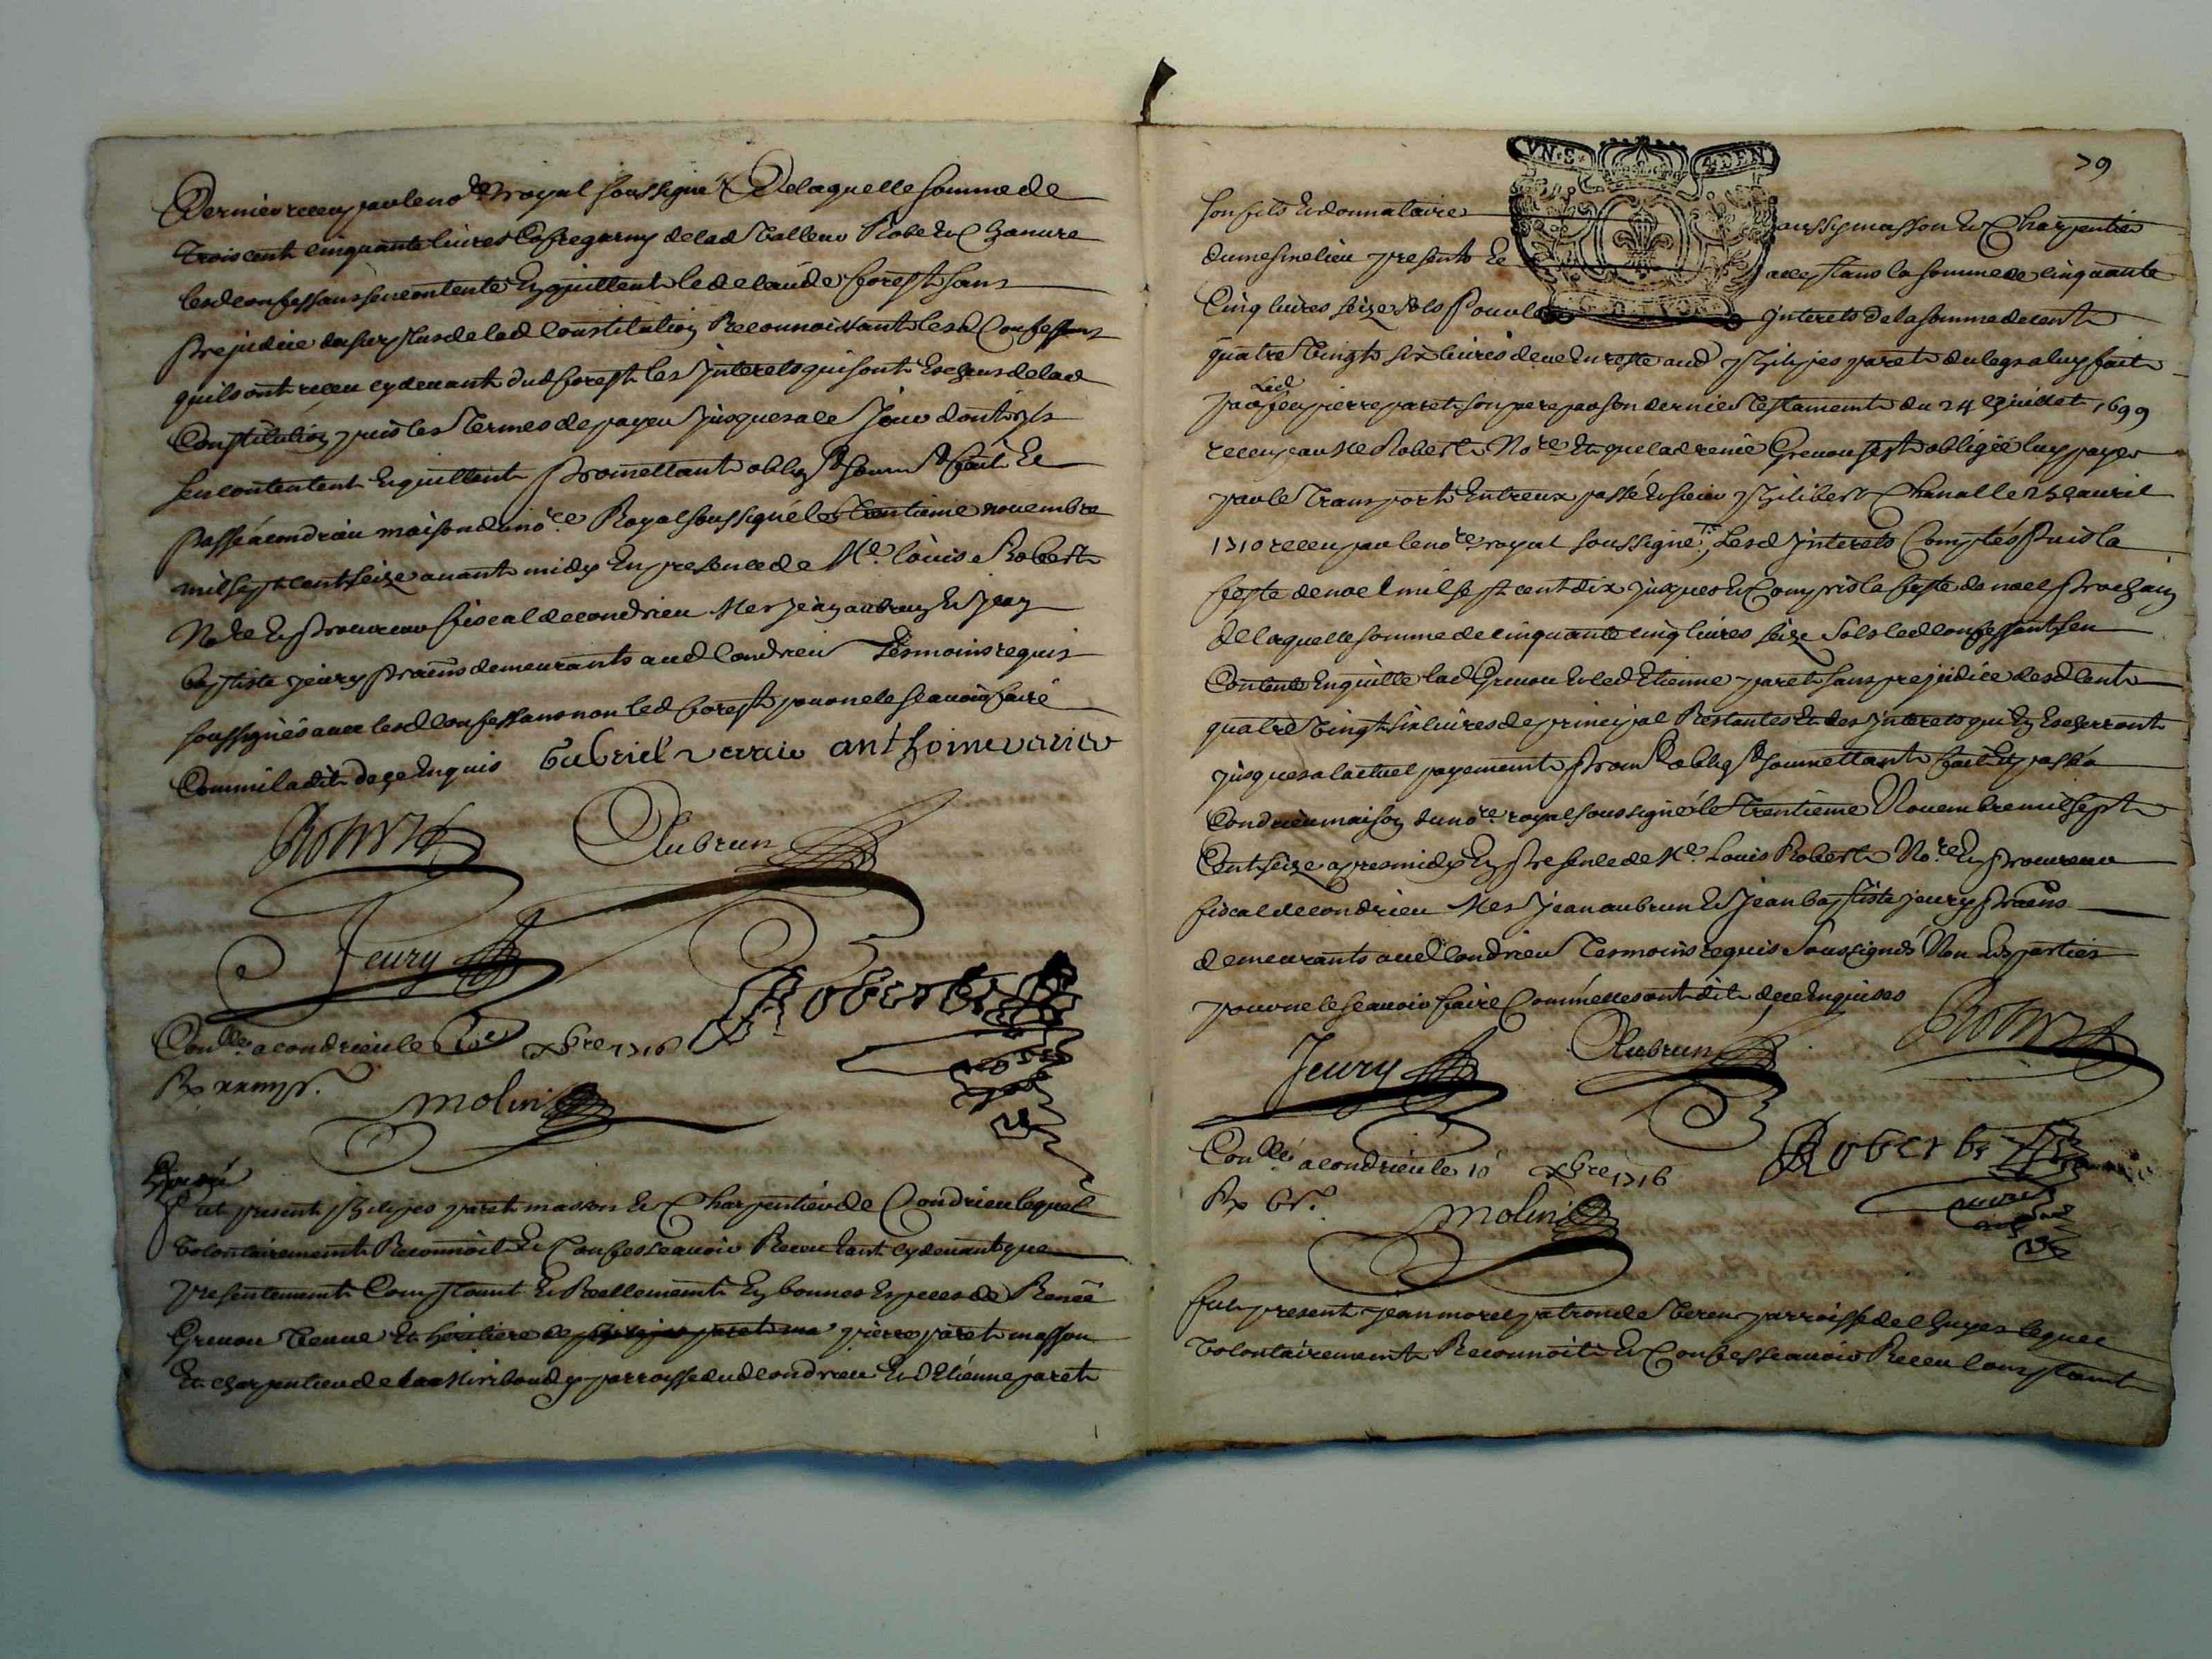 Dernier receu par le no.re royal soussigné De laquelle somme de
trois cent cinquante livres Cofre garny de lad valleur Robe Et Chanvre
lesd confessans se contente Et quittent led claude forest sans
prejudice du surplus de lad Constitution Reconnoissant lesd Confessans
quils ont receu cy devant dud forest les Interets qui sont Escheus de lad
Constitution puis les termes de payer Jusques a ce Jour dont ils
sen contentent Et quittent promettant oblig.t soum.t fait Et
passé a condrieu maison du no.re Royal soussigné le trentieme novembre
mil sept cent seize avant midy En presence de Me. Louis Robert
No.re Et procureur fiscal de condrieu Mes Jean aubrun Et Jean
baptiste jeury pratiens demeurants aud Condrieu tesmoins requis
soussignés avec lesd confessans non led forest pour ne le scavoir faire
Comm'il a dit de ce Enquis Gabriel verrier anthoine verrier
Robert Aubrun
Jeury Robert
Con.llé a condrieu le xbre 1716
Rx
molin
fut present philipes paret masson Et Charpentier de Condrieu lequel
volontairement Reconnoit Et Confesse avoir Receu tant cy devant que
presentement Comptant Et Reellement En bonnes Especes de Renée
Grenon veuve Et heritiere de philipes paret ma pierre paret masson
Et charpentier de parroisse dud condrieu Et d'Etienne paret
79
VN.S 4DEN
son fils Et donnataire aussy masson Et Charpentier
du mesme lieu presents Et acceptans la somme de cinquante
Cinq livres seize sols Pour les Interets de la somme de cent
G. D. LYON
quatre vingts six livres deue En reste aud philipes paret du legs a luy fait
par led feu pierre paret son pere par son dernier testament du 24 juillet 1699
receu par Me Robert No.re Et que lad renée Grenon sest obligée luy payer
par le transport Entreux passé Et sieur philibert Chanal le avril
1710 receu par le no.re royal soussigné, Lesd Interets Comptés Puis la
feste de noel mil sept cent dix jusques Et Compris la feste de noel prochain
de laquelle somme de cinquante cinq livres seize sols led confessant sen
Contente Et quitte lad Grenon Et led Etienne paret sans prejudice desd Cent
quatre vingt six livres de principal Restantes Et des Interets qui En Escherront
jusques a lactuel payement prom.t oblig.t soumettant fait Et passé a
Condrieu maison du no.re royal soussigné le trentieme Novembre mil sept
Cent seize apres midy En presence de Me. Louis Robert No.re Et procureur
fiscal de condrieu Mes Jean aubrun Et Jean baptiste jeury pratiens
demeurants aud Condrieu tesmoins requis Soussignés Non Les parties
pour ne le scavoir faire Comm'elles ont dit de ce Enquises
Jeury Aubrun Robert
Con.llé a condrieu le 10 xbre 1716 Robert
Rx
molin
fut present jean morel patron de vereu parroisse de Chuyes lequel
volontairement Reconnoit Et Confesse avoir Receu Comptant